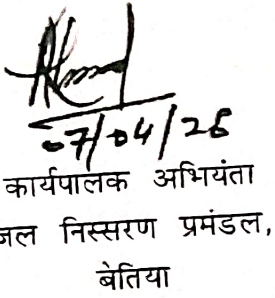 07/04/26
कार्यपालक अभियंता
जल निस्सरण प्रमंडल,
बेतिया